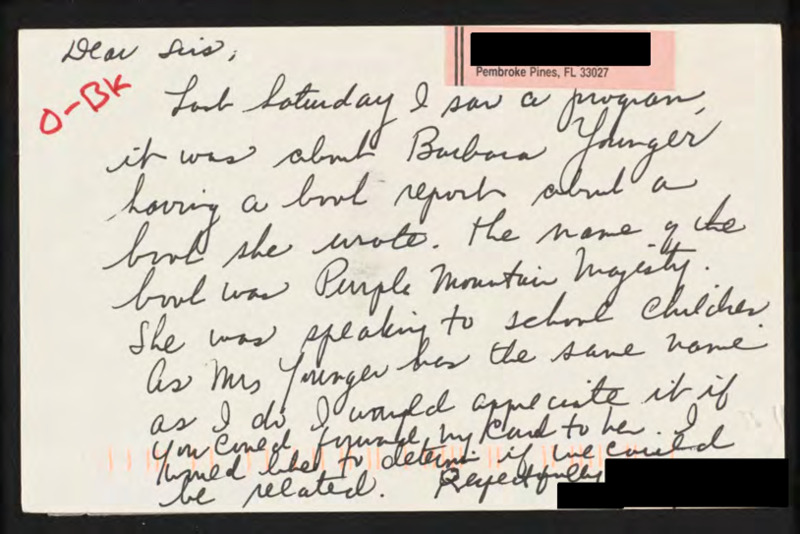 Dear Sirs,
Pembroke Pines, FL 33027
O-BK
Last Saturday I saw a program,
it was about Barbara Younger
having a book report about a
book she wrote. The name of the
book was Purple Mountain Majesty.
She was speaking to school children
As Mrs Younger has the same name
as I do I would appreciate it if
you could forward my card to her. I
would like to determ if we could
be related. Respectfully